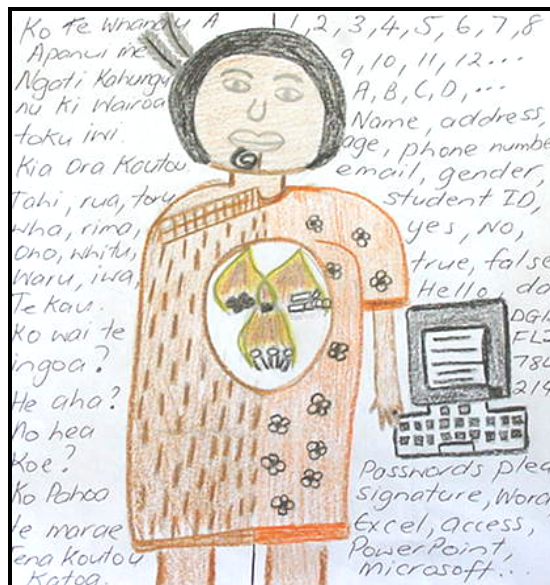 Ko Te Whanau A
Apanui me
Ngati Kahungu
nu ki Wairoa
toku iwi.
Kia Ora Koutou.
Tahi, rua, toru
wha, rima,
Ono, whitu,
Waru, iwa,
Te kau.
Ko wai te
ingoa?
He aha?
No hea
Koe?
Ko Pahoa
te marae
Tena Koutou
Katoa.
1, 2, 3, 4, 5, 6, 7, 8
9, 10, 11, 12...
A, B, C, D,...
Name, address,
age, phone numbe
email, gender,
student ID,
yes, no,
true, false
Hello, da
FL
786
214
Passwords plea
signature, Word
Excel, access,
PowerPoint,
microsoft...